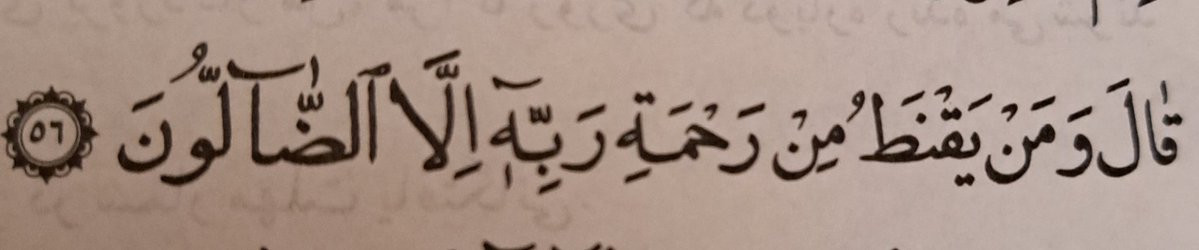 قٰالَ وَمَنْ يَقْنَطُ مِنْ رَحْمَةِ رَبِّهٖٓ اِلَّا ٱلضّٰآلُّونَ ٥٦